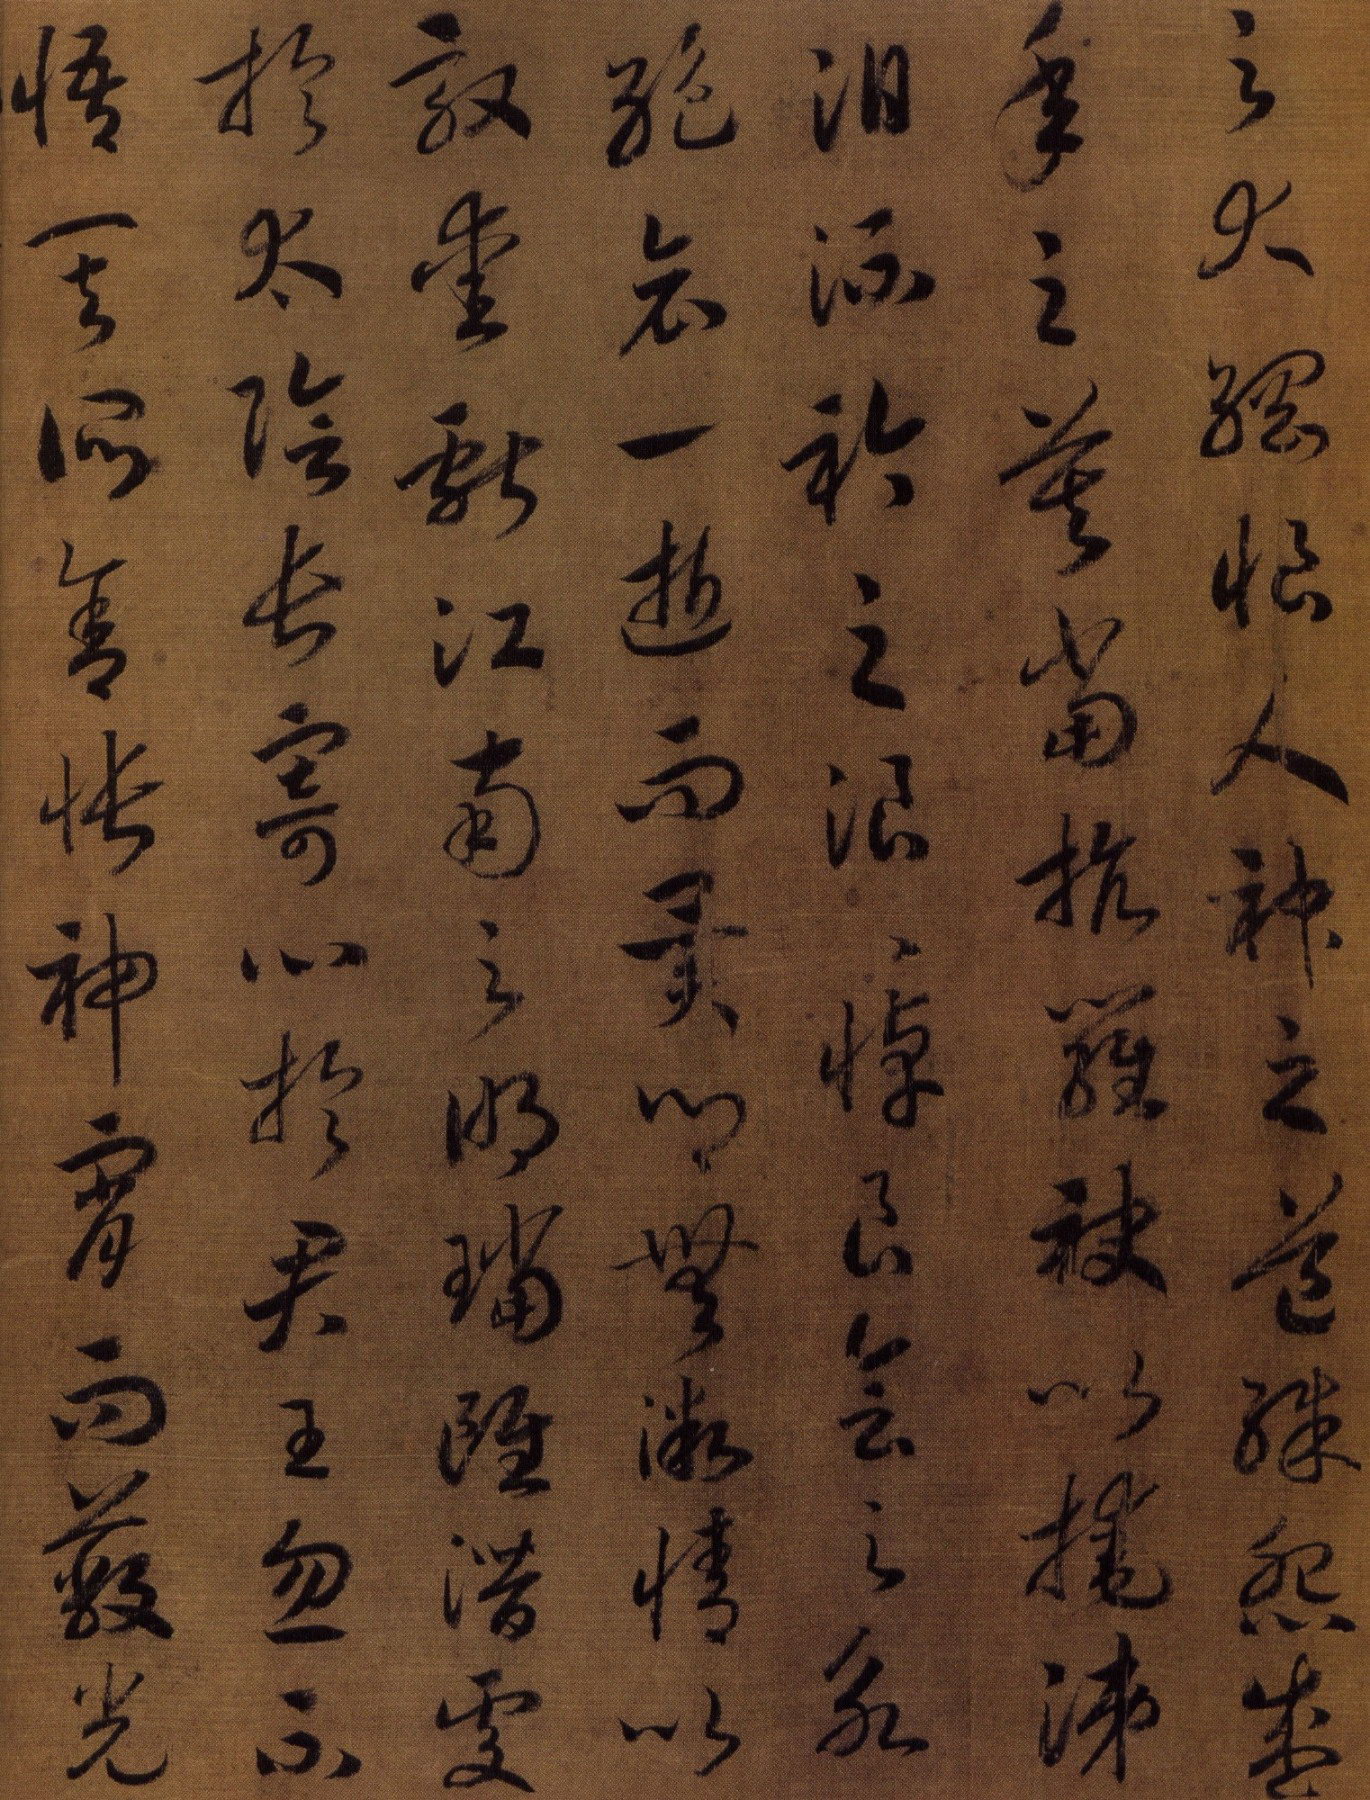 之大綱恨人神之道殊怨盛
年之莫當抗羅袂以掩涕
泪流衿之浪〻悼良会之永
絶哀一逝而異鄉無微情以
效愛獻江南之明璫雖潛處
於太陰長寄心於君王忽不
悟其所舍悵神宵而蔽光